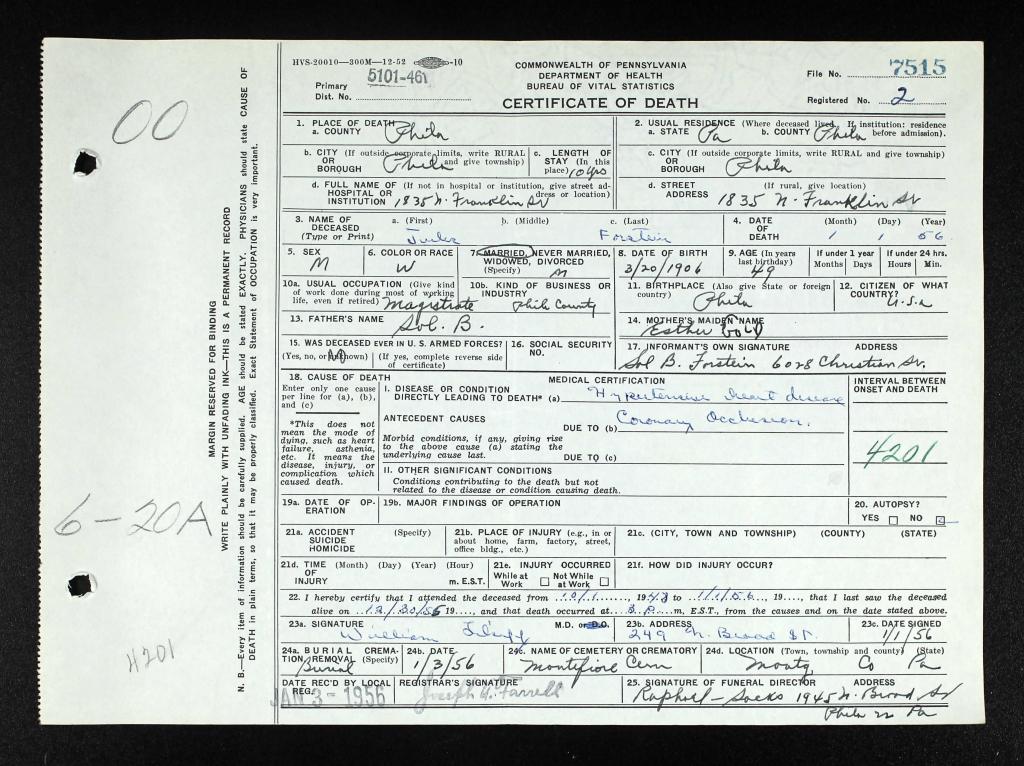 HVS-20010—300M—12-52 -10
COMMONWEALTH OF PENNSYLVANIA
DEPARTMENT OF HEALTH
BUREAU OF VITAL STATISTICS
CERTIFICATE OF DEATH
Primary Dist. No. 5101-461
File No. 7515
Registered No. 2
00
6-20A
4201
MARGIN RESERVED FOR BINDING
WRITE PLAINLY WITH UNFADING INK—THIS IS A PERMANENT RECORD
N. B.—Every item of information should be carefully supplied. AGE should be stated EXACTLY. PHYSICIANS should state CAUSE OF
DEATH in plain terms, so that it may be properly classified. Exact Statement of OCCUPATION is very important.
1. PLACE OF DEATH
a. COUNTY Phila
2. USUAL RESIDENCE (Where deceased lived. If institution: residence before admission).
a. STATE Pa b. COUNTY Phila
b. CITY (If outside corporate limits, write RURAL and give township)
OR BOROUGH Phila
c. LENGTH OF STAY (In this place) 10 yrs
c. CITY (If outside corporate limits, write RURAL and give township)
OR BOROUGH Phila
d. FULL NAME OF HOSPITAL OR INSTITUTION (If not in hospital or institution, give street address or location)
1835 N. Franklin St
d. STREET ADDRESS (If rural, give location)
1835 N. Franklin St
3. NAME OF DECEASED (Type or Print) a. (First) b. (Middle) c. (Last)
Forstein
4. DATE OF DEATH (Month) (Day) (Year)
1 1 56
5. SEX M
6. COLOR OR RACE W
7. MARRIED, NEVER MARRIED, WIDOWED, DIVORCED (Specify) M
8. DATE OF BIRTH 3/20/1906
9. AGE (In years last birthday) 49
If under 1 year Months Days
If under 24 hrs. Hours Min.
10a. USUAL OCCUPATION (Give kind of work done during most of working life, even if retired) Magistrate
10b. KIND OF BUSINESS OR INDUSTRY Phila County
11. BIRTHPLACE (Also give State or foreign country) Phila
12. CITIZEN OF WHAT COUNTRY? U.S.A
13. FATHER'S NAME Sol. B.
14. MOTHER'S MAIDEN NAME Esther Gold
15. WAS DECEASED EVER IN U. S. ARMED FORCES?
(Yes, no, or unknown) No (If yes, complete reverse side of certificate)
16. SOCIAL SECURITY NO.
17. INFORMANT'S OWN SIGNATURE ADDRESS
Sol B. Forstein 6028 Christian St.
18. CAUSE OF DEATH
Enter only one cause per line for (a), (b), and (c)
*This does not mean the mode of dying, such as heart failure, asthenia, etc. It means the disease, injury, or complication which caused death.
MEDICAL CERTIFICATION
INTERVAL BETWEEN ONSET AND DEATH
I. DISEASE OR CONDITION DIRECTLY LEADING TO DEATH* (a) Hypertensive heart disease
ANTECEDENT CAUSES
DUE TO (b) Coronary Occlusion.
Morbid conditions, if any, giving rise to the above cause (a) stating the underlying cause last.
DUE TO (c)
4201
II. OTHER SIGNIFICANT CONDITIONS
Conditions contributing to the death but not related to the disease or condition causing death.
19a. DATE OF OPERATION
19b. MAJOR FINDINGS OF OPERATION
20. AUTOPSY?
YES NO
21a. ACCIDENT SUICIDE HOMICIDE (Specify)
21b. PLACE OF INJURY (e.g., in or about home, farm, factory, street, office bldg., etc.)
21c. (CITY, TOWN AND TOWNSHIP) (COUNTY) (STATE)
21d. TIME OF INJURY (Month) (Day) (Year) (Hour) m. E.S.T.
21e. INJURY OCCURRED
While at Work Not While at Work
21f. HOW DID INJURY OCCUR?
22. I hereby certify that I attended the deceased from 10/1, 1948 to 1/1/56, 19...., that I last saw the deceased
alive on 12/30/55 19...., and that death occurred at 3 P. m., E.S.T., from the causes and on the date stated above.
23a. SIGNATURE M.D. or D.O.
William
23b. ADDRESS 249 N. Broad St.
23c. DATE SIGNED 1/1/56
24a. BURIAL CREMATION, REMOVAL (Specify) Burial
24b. DATE 1/3/56
24c. NAME OF CEMETERY OR CREMATORY Montefiore Cem
24d. LOCATION (Town, township and county) (State)
Montg. Co Pa
DATE REC'D BY LOCAL REG. JAN 3 - 1956
REGISTRAR'S SIGNATURE Joseph A. Farrell
25. SIGNATURE OF FUNERAL DIRECTOR ADDRESS
Raphael-Sacks 1945 N. Broad St
Phila 22 Pa